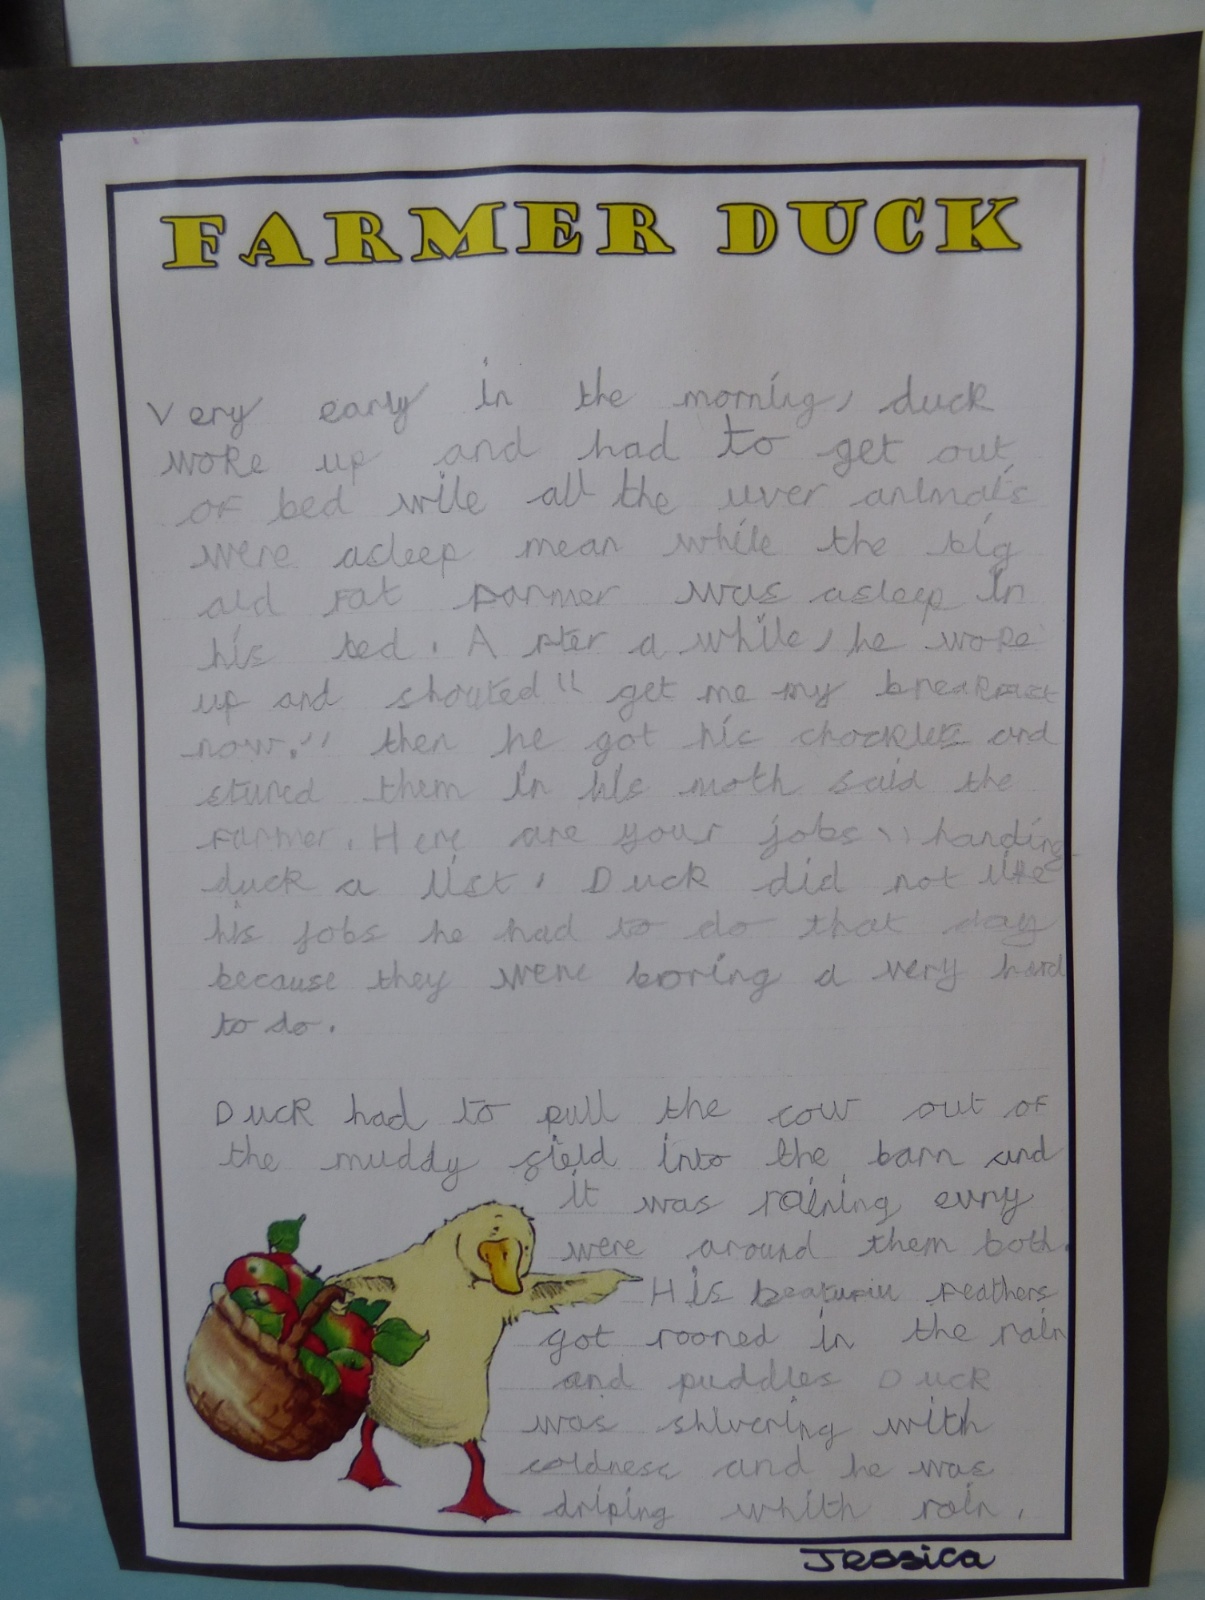 FARMER DUCK
Very early in the morning, duck
woke up and had to get out
of bed wile all the uver animals
were asleep mean while the big
old fat farmer was asleep in
his bed. After a while, he woke
up and shouted" get me my breakfast
now." then he got his chocklets and
stuned them in his moth said the
farmer. Here are your jobs" handing
duck a list, Duck did not like
his jobs he had to do that day
because they were boring a very hard
to do.
Duck had to pull the cow out of
the muddy field into the barn and
it was raining evry
were around them both.
His beatufull feathers
got rooned in the rain
and puddles Duck
was shivering with
coldness and he was
driping whith rain.
Jessica